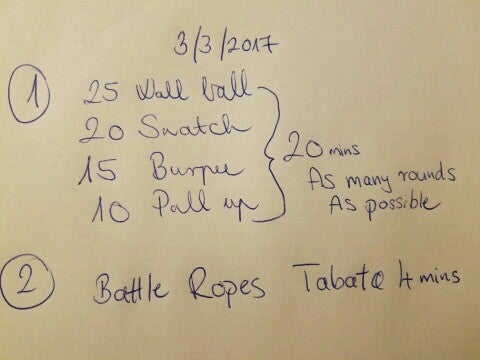 3/3/2017
1
25 Wall ball
20 Snatch
15 Burpee
10 Pull up
20 mins
As many rounds
As possible
2 Battle Ropes Tabata 4 mins